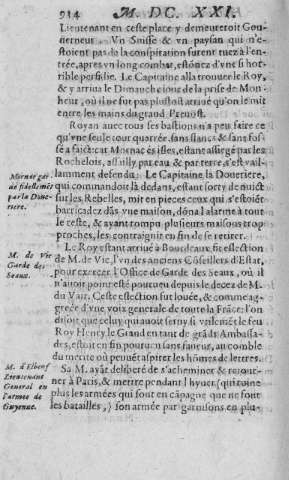 914 M. DC. XXI.
Lieutenant en ceste place y demeureroit Gou-
uerneur. Vn Suisse & vn paysan qui n'e-
stoient pas de la conspiration furent tuez à l'en-
trée, apres vn long combat, estonez d'vne si hor-
rible perfidie. Le Capitaine alla trouuer le Roy,
& y arriua le Dimanche iour de la prise de Mon-
heur, où il ne fut pas plustost arriué qu'on le mit
entre les mains du grand Preuost.
Royan auec tous ses bastions n'a peu faire ce
qu'vne seule tour quarrée, sans flancs & sans fos-
sé a faict: car Mornac és isles, estant assiegé par les
Mornac gar-
dé fidellemēt
par la Doue-
riere.
Rochelois, assailly par eau & par terre, s'est vail-
lamment defendu. Le Capitaine la Doueriere,
qui commandoit là dedans, estant sorty de nuict
sur les Rebelles, mit en pieces ceux qui s'estoiēt
barricadez dās vne maison, dōna l'alarme à tout
le reste, & ayant rompu plusieurs maisons trop
proches, les contraignit en fin de se retirer.
M. de Vic
Garde des
Seaux.
Le Roy estant arriué à Bourdeaux fit eslection
de M. de Vic, l'vn des anciens Cōseillers d'Estat,
pour exercer l'Office de Garde des Seaux, où il
n'auoit point esté pourueu depuis le decez de M.
du Vair. Ceste eslection fut louée, & comme ag-
greée d'vne voix generale de toute la Frāce: l'on
disoit que celuy qui auoit seruy si vtilement le feu
Roy Henry le Grand en tant de grāds Ambassa-
des, estoit en fin pourueu sans faueur, au comble
du merite où peuuēt aspirer les hōmes de lettres.
M. d'Elbeuf
Lieutenant
General en
l'armee de
Guyenne.
Sa M. ayāt deliberé de s'acheminer & retour-
ner à Paris, & mettre pendant l'hyuer (qui ruine
plus les armées qui sont en cāpagne que ne font
les batailles,) son armée par garnisons en plu-